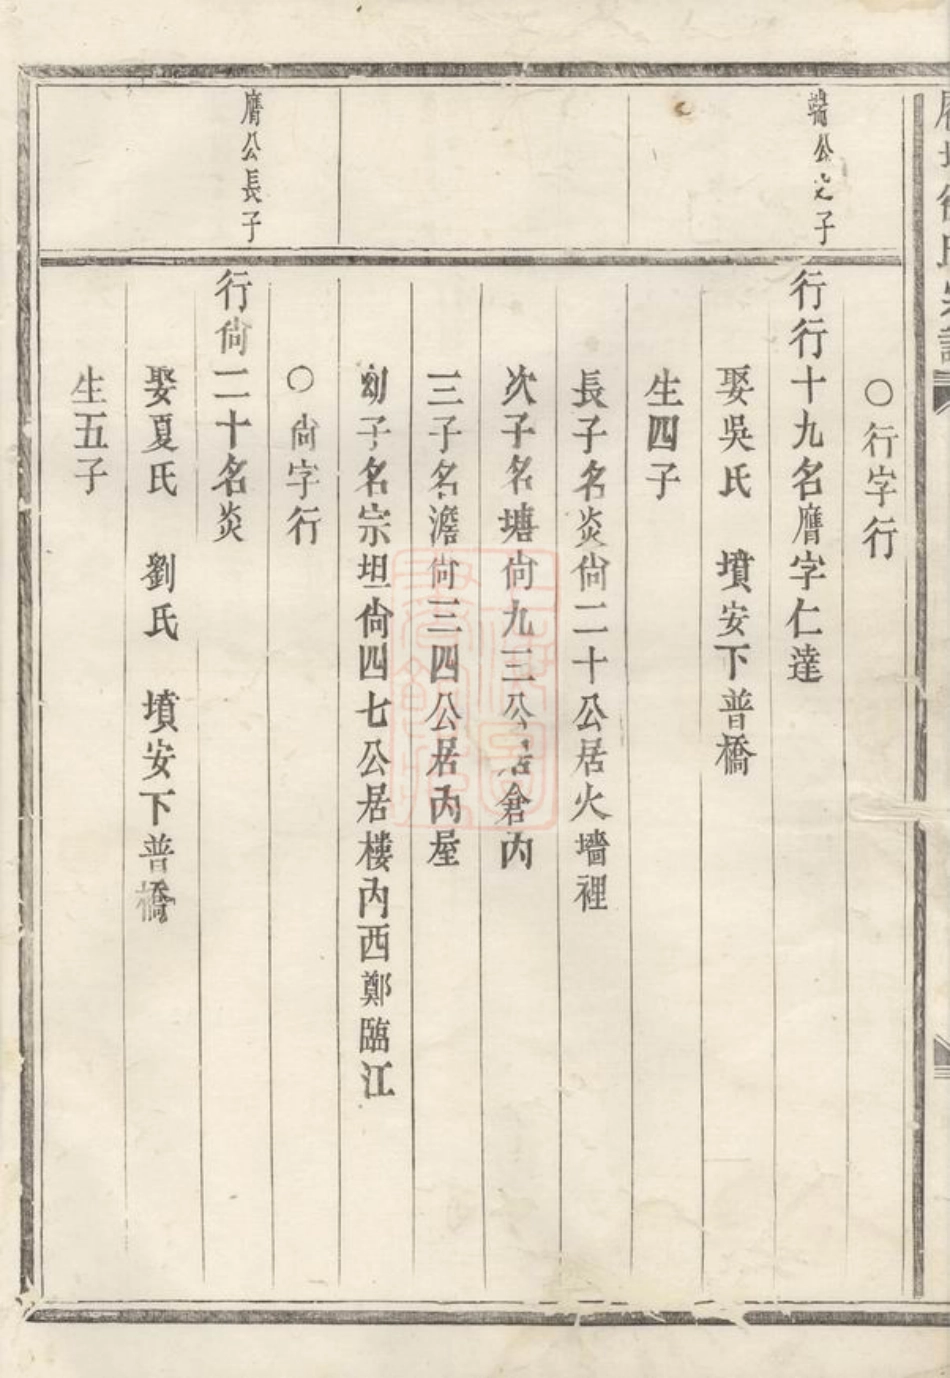 ○行字行
端公之子
行行十九名膺字仁達
娶吳氏　墳安下普橋
生四子
長子名炎尙二十公居火墻裡
次子名塘尙九三公居倉內
三子名澹尙三四公居內屋
幼子名宗坦尙四七公居樓內西鄭臨江
○尙字行
膺公長子
行尙二十名炎
娶夏氏　劉氏　墳安下普橋
生五子